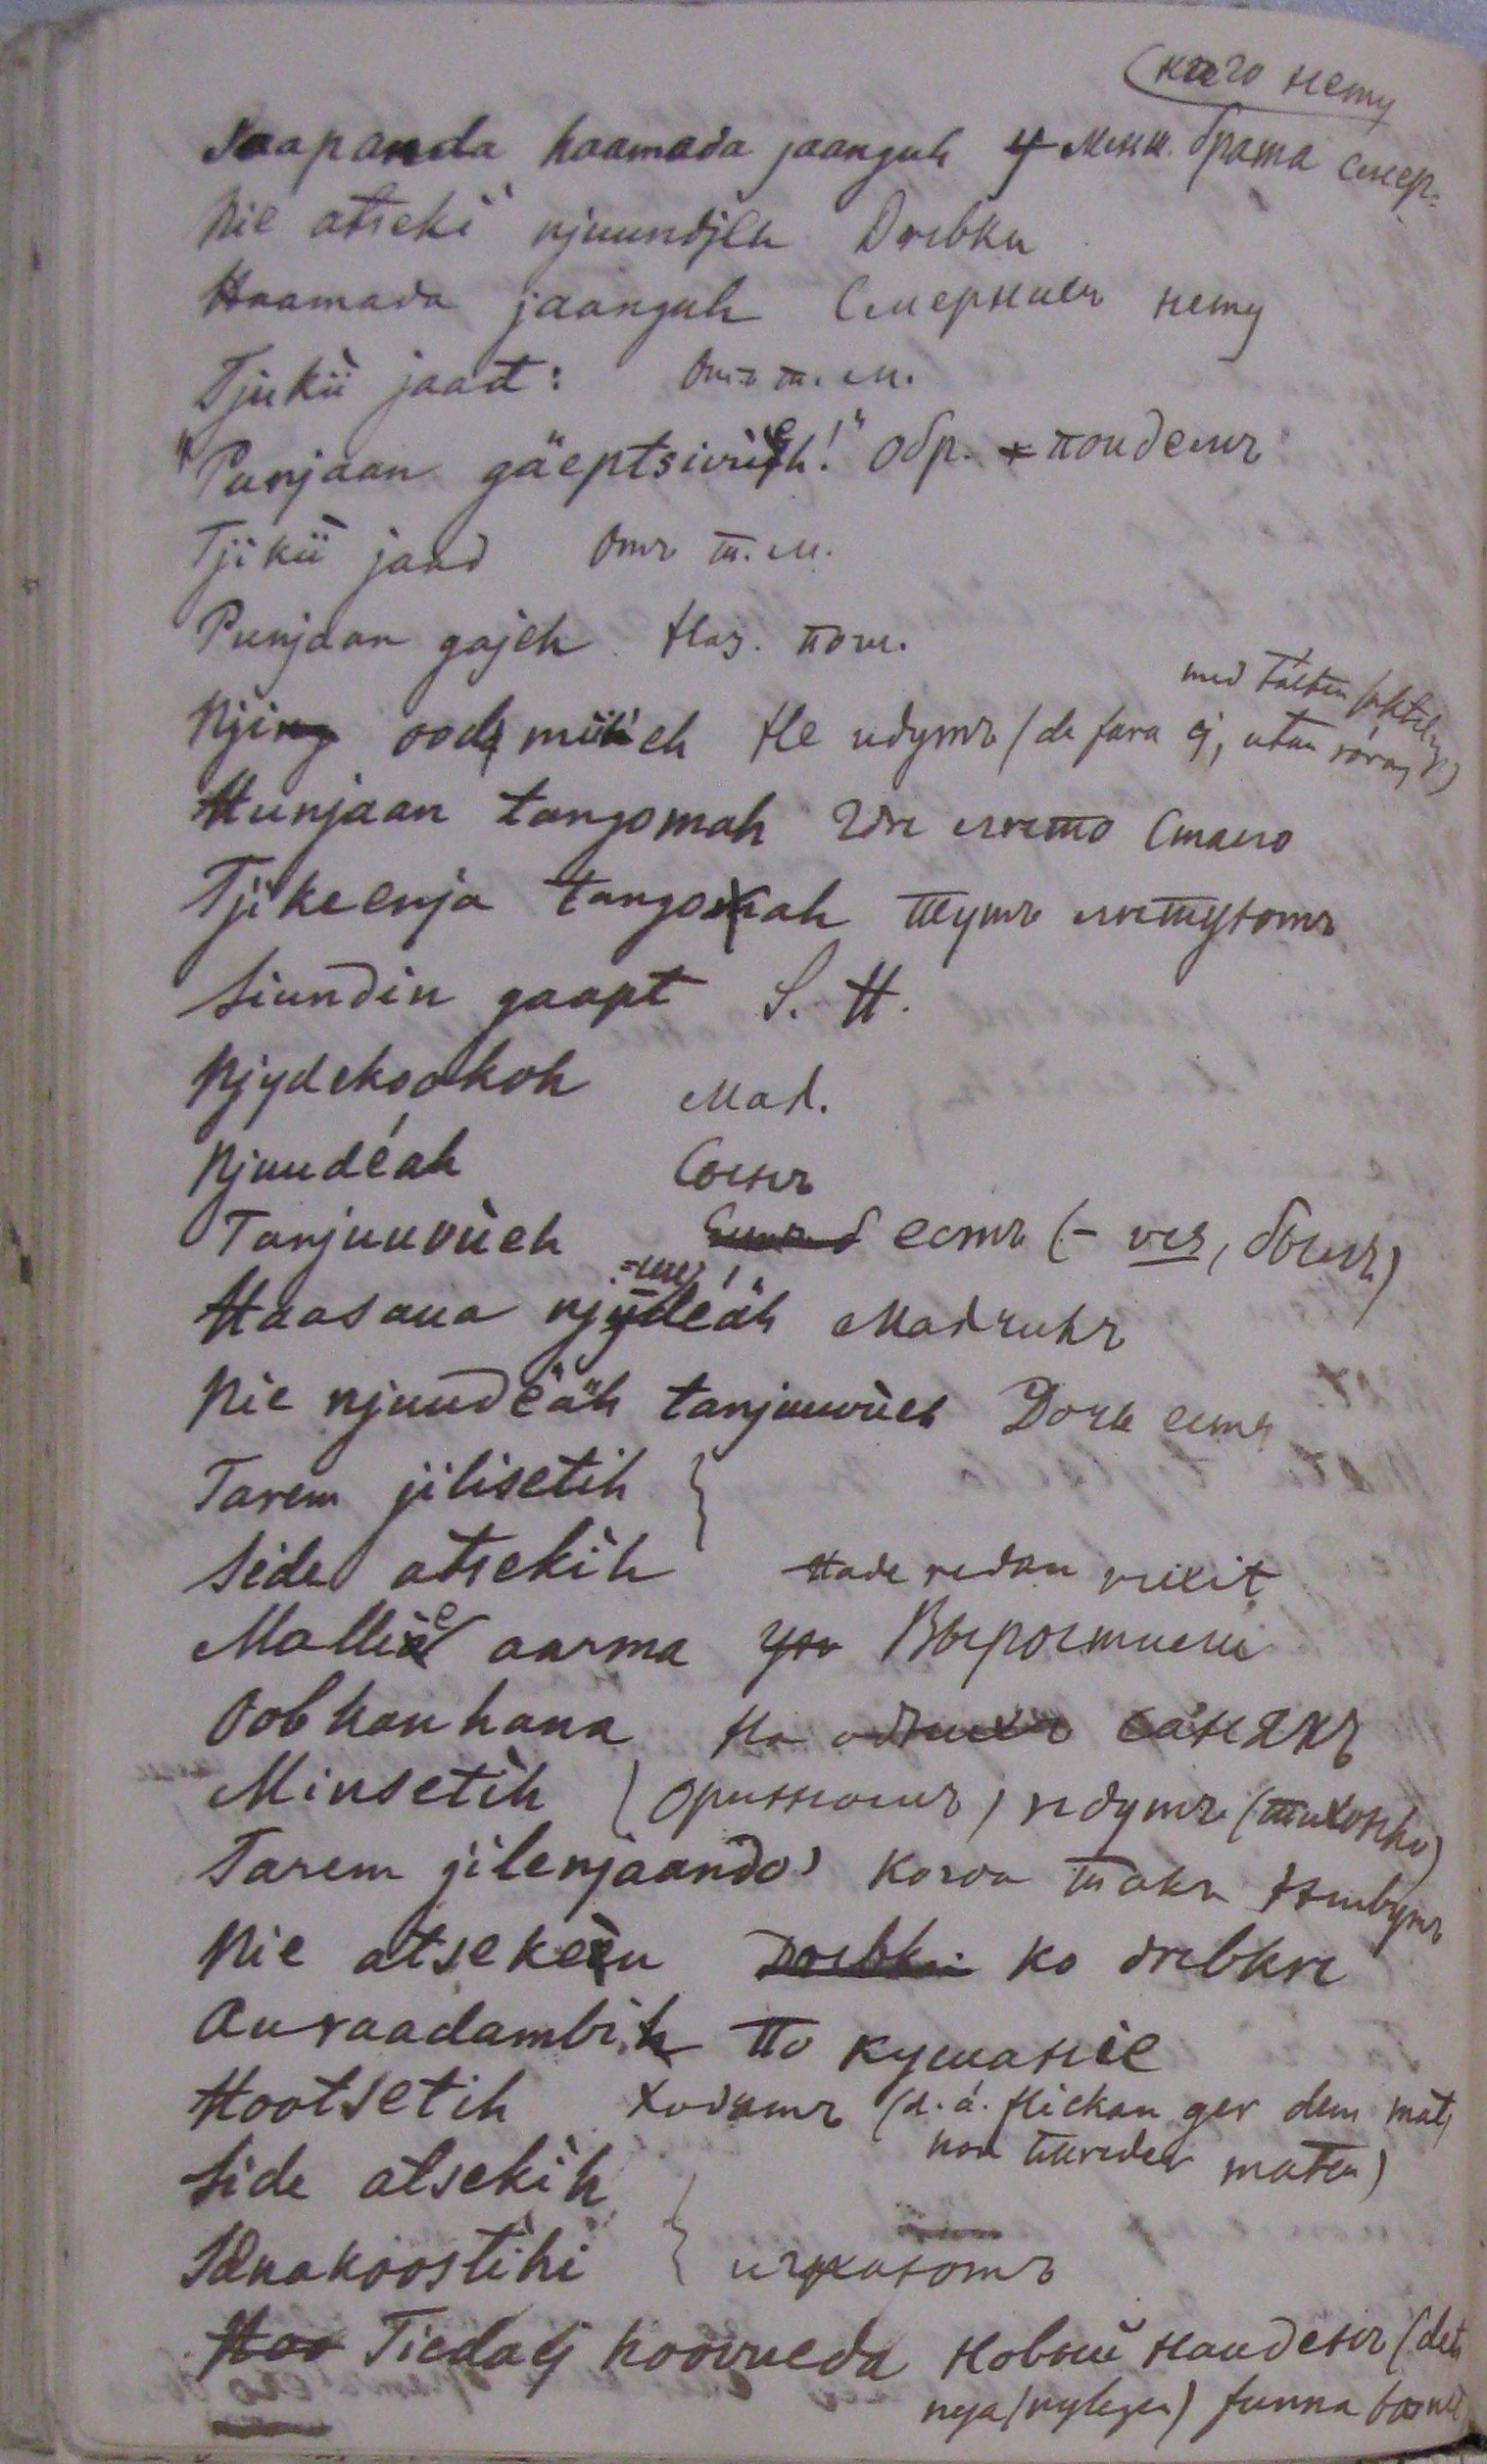 кого нему
Saapanda haamada jaanguh у меня брата смер.
Nie atseki njuundjeh Девки
Haamada jaanguh Смерниеъ нету
Tjukii jaad: Отъ т. м.
"Punjaan gäeptsivüeh!" Обр. пойдемъ
Tjikii jaad Отъ т. м.
Punjaan gajeh Наз. пош.
Njing oods müüeh Не идутъ (de fara ej, utan röra
med tälten
Hunjaan tangomah Где лето стало
Tjikeenja tangomah тутъ летуютъ
Siundin gaapt S. H.
Njydekookoh Мал.
Njuudéah Сынъ
Tanjuuvüeh есть (- ves, былъ)
Haasaua njydeäh Мальчикъ
Nie njuudeäh tanjuuvüeh Дочь есть
Tarem jilisetih
Side atsekih Hade redan vuxit
Mallie aarma Выростили
Oobkauhana На саняхъ
Minsetih идутъ (тихонько)
Tarem jilenjaando' Когда такъ живутъ
Nie atsekeen ко девке
Auraadambih По кушаніе
Hootsetih Ходятъ (d. ä. flickan ger dem mat,
hon tillreder maten)
Side atsekih
Sänakoostihi играютъ
Tiedaej hoovueda новый найденъ (det
nya (nyligen) funna